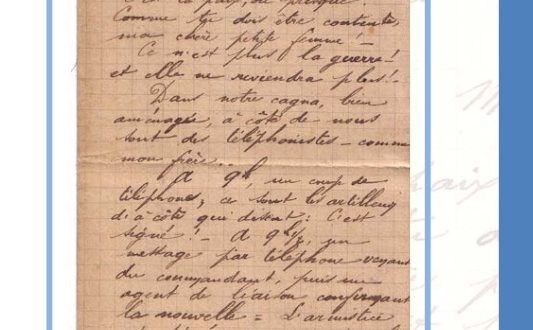 la paix, ou presque!
Comme tu dois être contente,
ma chère petite femme! –
Ce n'est plus la guerre!
et elle ne reviendra plus! –
Dans notre cagna, bien
aménagée, à côté de nous
sont des téléphonistes – comme
mon frère..
A 9h, un coup de
téléphone, ce sont les artilleurs
d'à côté qui disent: C'est
signé! – A 9h ½, un
message par téléphone venant
du commandant, puis un
agent de liaison confirmant
la nouvelle = L'armistice